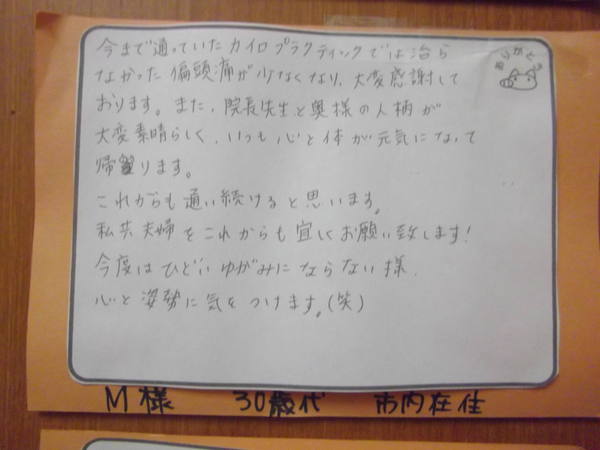 今まで通っていたカイロプラクティックでは治ら
なかった偏頭痛が少なくなり、大変感謝して
おります。また、院長先生と奥様の人柄が
大変素晴らしく、いつも心と体が元気になって
帰ります。
これからも通い続けると思います。
私共夫婦をこれからも宜しくお願い致します!
今度はひどいゆがみにならない様、
心と姿勢に気をつけます。(笑)
ありがとう
M様 30歳代 市内在住